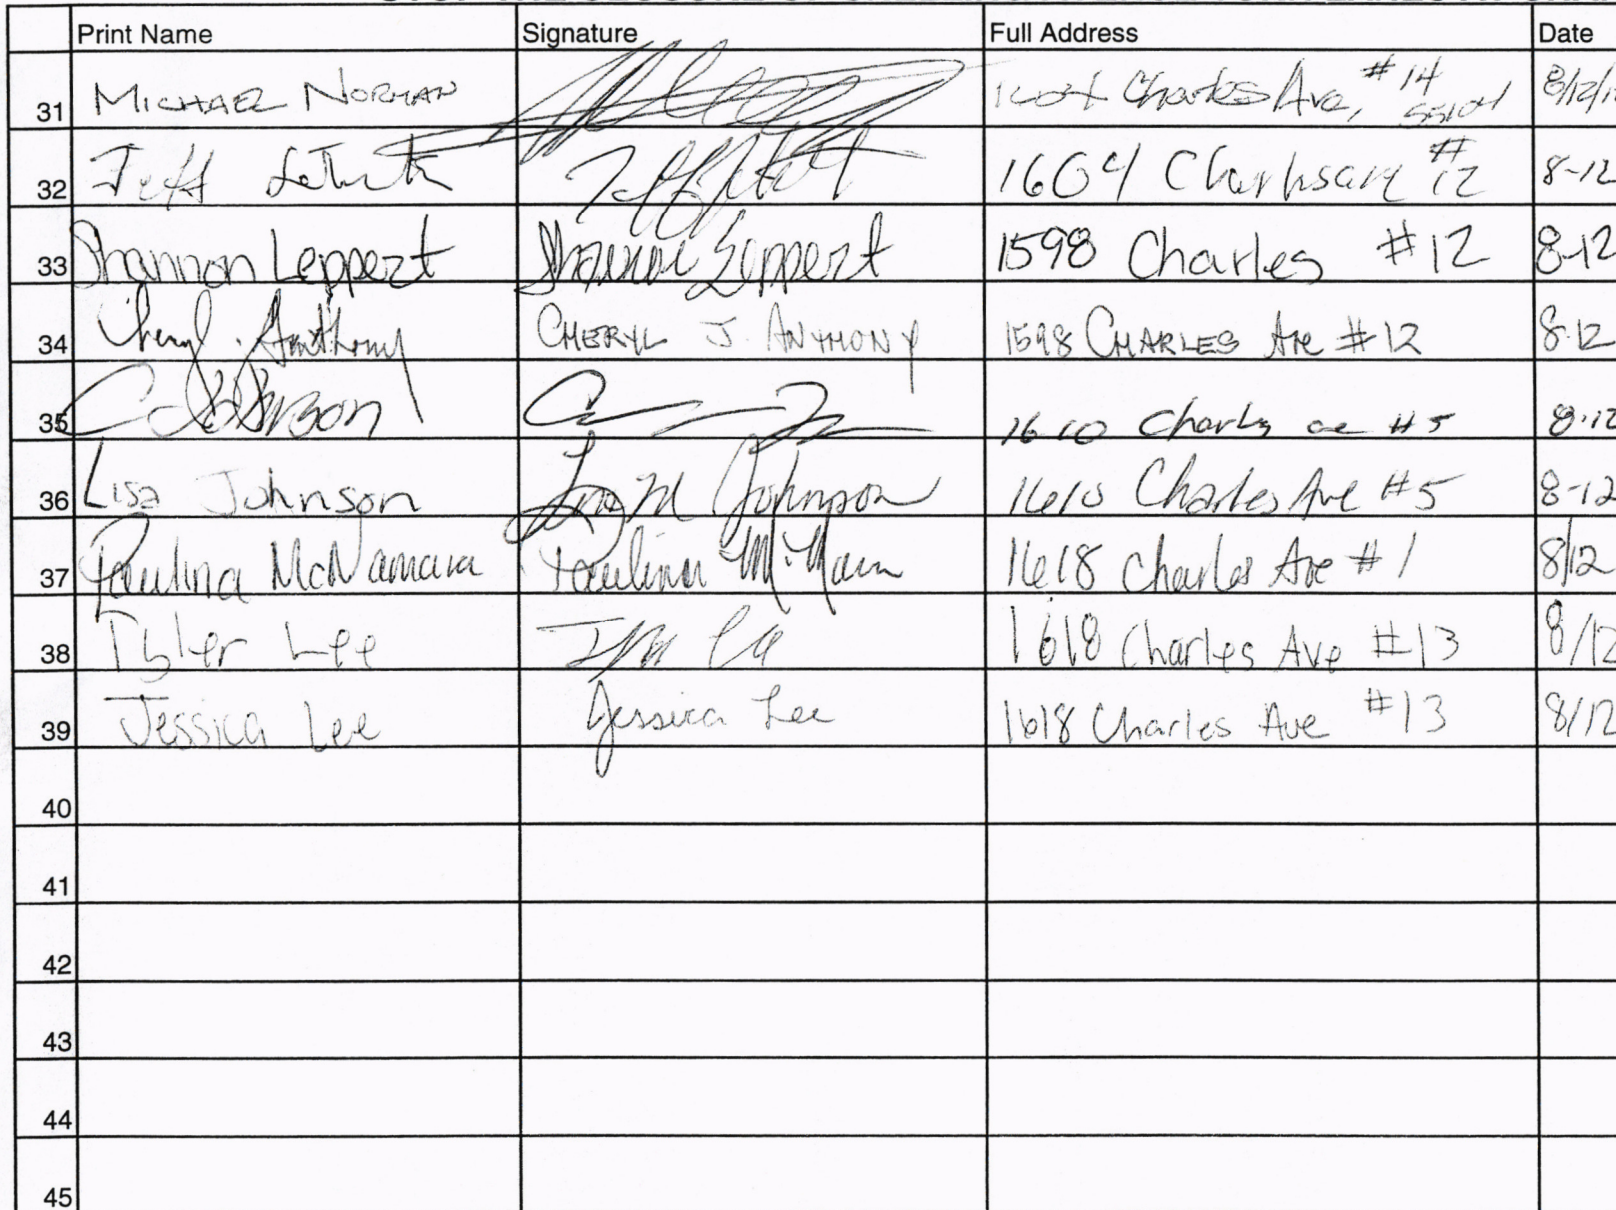 Print Name Signature Full Address Date
31 MICHAEL NORMAN 1604 Charles Ave, #14 55104 8/12/1
32 Jeff 1604 Charles ave #12 8-12
33 Shannon Leppert Shannon Leppert 1598 Charles #12 8-12
34 Cheryl Anthony CHERYL J. ANTHONY 1598 CHARLES Ave #12 8-12
35 1610 Charles ave #5 8-12
36 Lisa Johnson Lisa M Johnson 1610 Charles Ave #5 8-12
37 Paulina McNamara Paulina McNam 1618 Charles Ave #1 8/12
38 Tyler Lee 1618 Charles Ave #13 8/12
39 Jessica Lee Jessica Lee 1618 Charles Ave #13 8/12
40
41
42
43
44
45